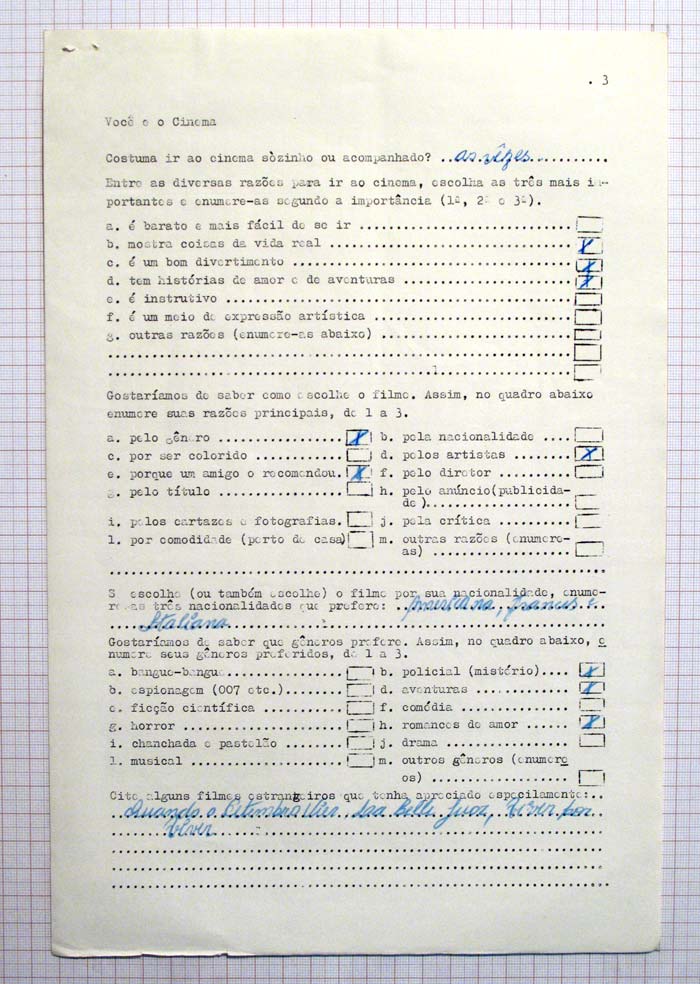 . 3
Você e o Cinema
Costuma ir ao cinema sòzinho ou acompanhado? ..as vêzes............
Entre as diversas razões para ir ao cinema, escolha as três mais im-
portantes e enumere-as segundo a importância (1ª, 2ª e 3ª).
a. é barato e mais fácil de se ir ..............................
b. mostra coisas da vida real .................................. X
c. é um bom divertimento ....................................... X
d. tem histórias de amor e de aventuras ........................ X
e. é instrutivo ................................................
f. é um meio de expressão artística ............................
g. outras razões (enumere-as abaixo) ...........................
Gostaríamos de saber como escolhe o filme. Assim, no quadro abaixo
enumere suas razões principais, de 1 a 3.
a. pelo gênero ................ X b. pela nacionalidade ....
c. por ser colorido ........... d. pelos artistas ........ X
e. porque um amigo o recomendou. X f. pelo diretor ..........
g. pelo título ................ h. pelo anúncio(publicida-
de )..................
i. pelos cartazes e fotografias. j. pela crítica ..........
l. por comodidade (perto de casa) m. outras razões (enumere-
as) ..................
S escolhe (ou também escolhe) o filme por sua nacionalidade, enume-
re-as três nacionalidades que prefere: ..Americana, francus e
Italiana
Gostaríamos de saber que gêneros prefere. Assim, no quadro abaixo, e
numere seus gêneros preferidos, de 1 a 3.
a. bangue-bangue .............. b. policial (mistério).... X
b. espionagem (007 etc.)....... d. aventuras ............. X
e. ficção científica .......... f. comédia ...............
g. horror ..................... h. romances de amor ...... X
i. chanchada e pastelão ....... j. drama .................
l. musical .................... m. outros gêneros (enumere
os) ..................
Cite alguns filmes estrangeiros que tenha apreciado especilamente:..
Quando o Setembro Vier. La Belle Viver por
Viver